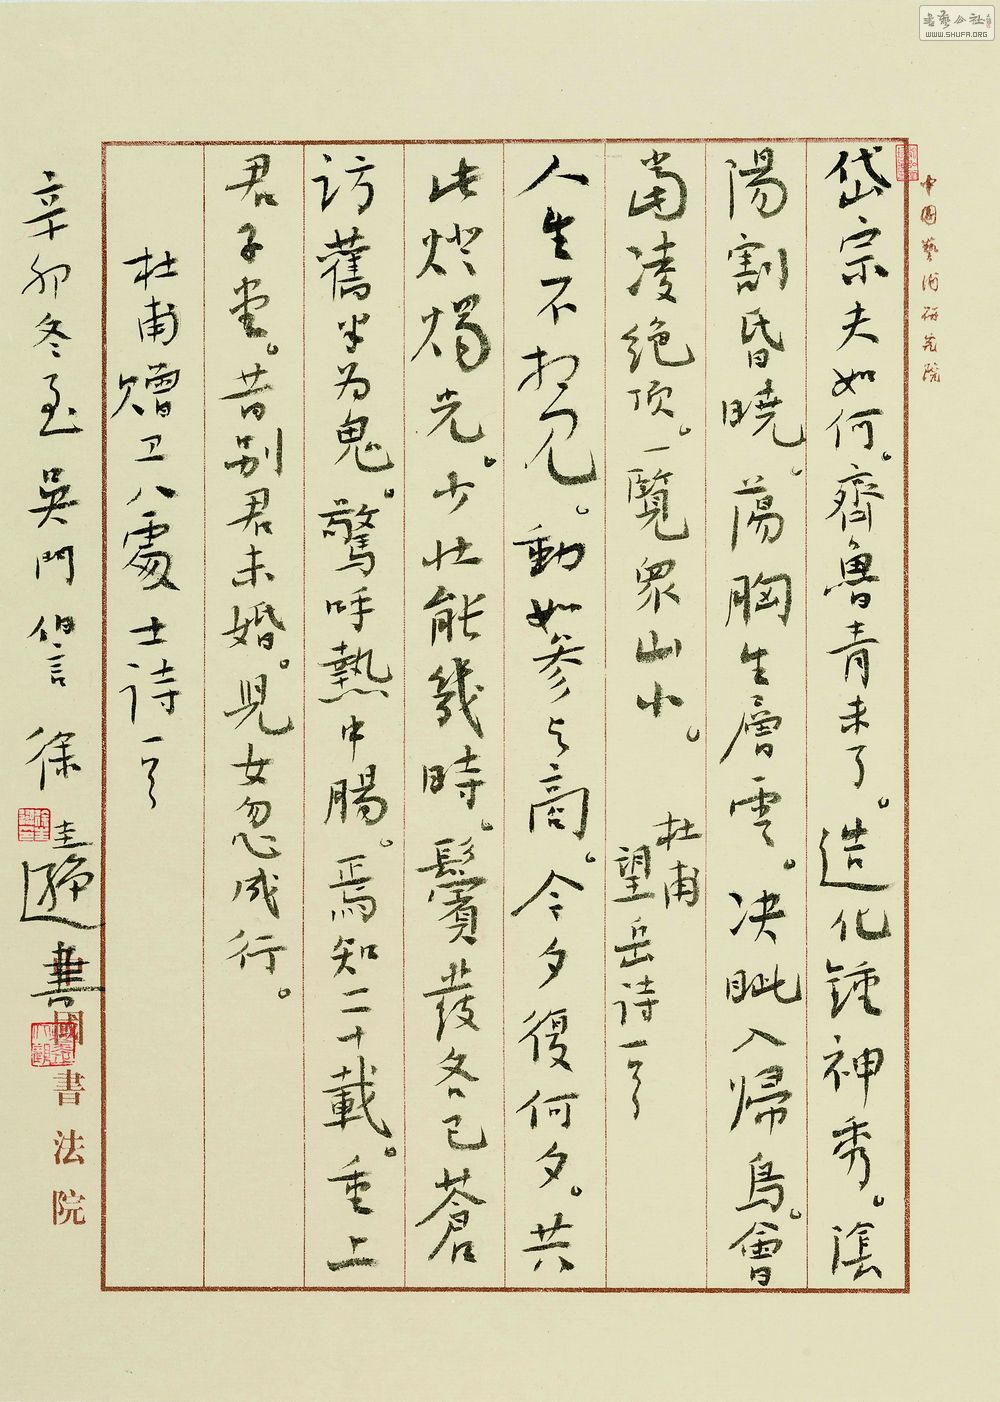 中國藝術研究院
岱宗夫如何。齊魯青未了。造化鍾神秀。陰
陽割昏曉。蕩胸生層雲。决眦入歸鳥。會
當凌絕頂。一覽眾山小。
杜甫
望岳詩一首
人生不相見。動如參与商。今夕復何夕。共
此燈燭光。少壯能幾時。鬢發各已蒼
訪舊半為鬼。驚呼熱中腸。焉知二十載。重上
君子堂。昔別君未婚。兒女忽成行。
杜甫贈卫八處士詩一首
辛卯冬至吳門 徐圭遜書
國書法院
書藝公社
WWW.SHUFA.ORG